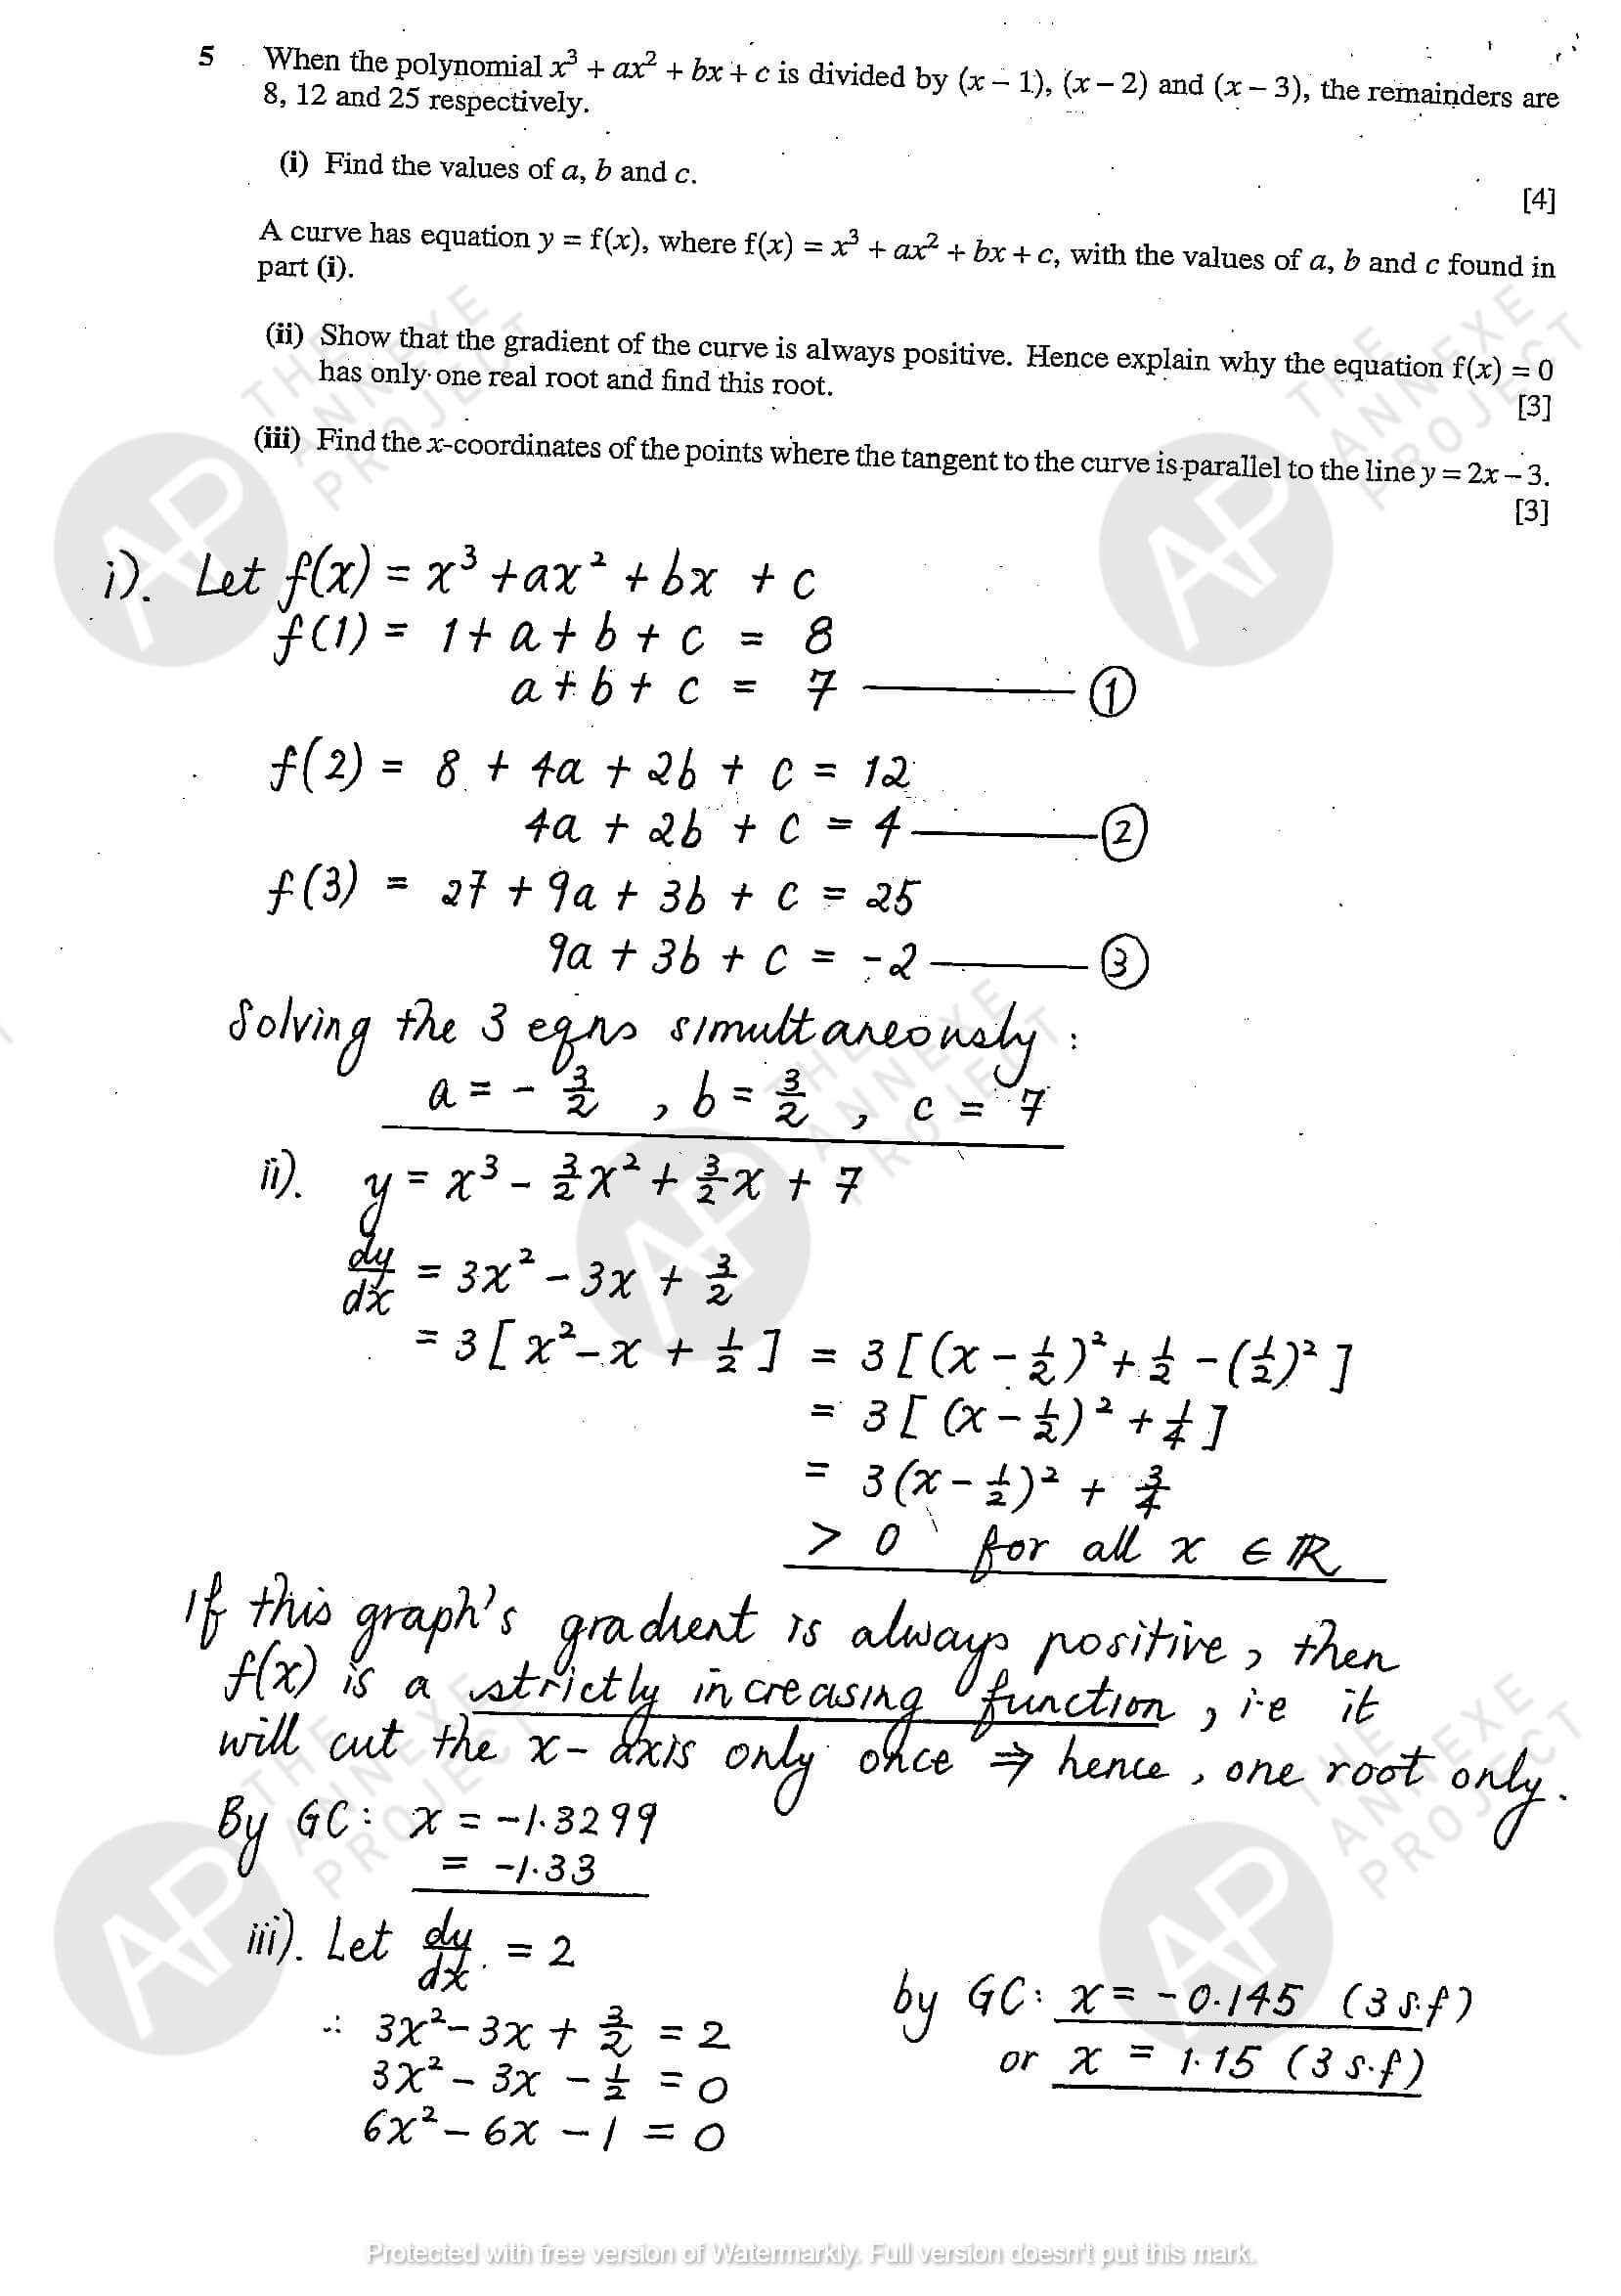 5 When the polynomial x³ + ax² + bx + c is divided by (x – 1), (x – 2) and (x – 3), the remainders are
8, 12 and 25 respectively.
(i) Find the values of a, b and c.
[4]
A curve has equation y = f(x), where f(x) = x³ + ax² + bx + c, with the values of a, b and c found in
part (i).
(ii) Show that the gradient of the curve is always positive. Hence explain why the equation f(x) = 0
has only one real root and find this root.
[3]
(iii) Find the x-coordinates of the points where the tangent to the curve is parallel to the line y = 2x – 3.
[3]
i). Let f(x) = x³ + ax² + bx + c
f(1) = 1 + a + b + c = 8
a + b + c = 7 ——— ①
f(2) = 8 + 4a + 2b + c = 12
4a + 2b + c = 4 ——— ②
f(3) = 27 + 9a + 3b + c = 25
9a + 3b + c = -2 ——— ③
Solving the 3 eqns simultaneously :
a = - 3/2 , b = 3/2 , c = 7
ii). y = x³ - 3/2 x² + 3/2 x + 7
dy/dx = 3x² - 3x + 3/2
= 3[x² - x + 1/2] = 3[(x - 1/2)² + 1/2 - (1/2)²]
= 3[(x - 1/2)² + 1/4]
= 3(x - 1/2)² + 3/4
> 0 for all x ∈ ℝ
If this graph's gradient is always positive, then
f(x) is a strictly increasing function, i.e it
will cut the x-axis only once ⇒ hence, one root only.
By GC: x = -1.3299
= -1.33
iii). Let dy/dx = 2
∴ 3x² - 3x + 3/2 = 2
3x² - 3x - 1/2 = 0
6x² - 6x - 1 = 0
by GC: x = -0.145 (3 s.f)
or x = 1.15 (3 s.f)
THE ANNEXE PROJECT
AP
THE ANNEXE PROJECT
AP
THE ANNEXE PROJECT
AP
THE ANNEXE PROJECT
AP
THE ANNEXE PROJECT
AP
Protected with free version of Watermarkly. Full version doesn't put this mark.